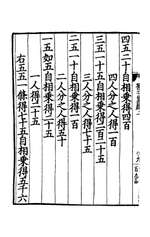 四五二十自相乘得四百
四人分之人得一百
三五一十五自相乘得二百二十五
三人分之人得七十五
二五一十自相乘得一百
二人分之人得五十
一五如五自相乘得二十五
一人得二十五
右五五一條得七十五自相乘得五千六